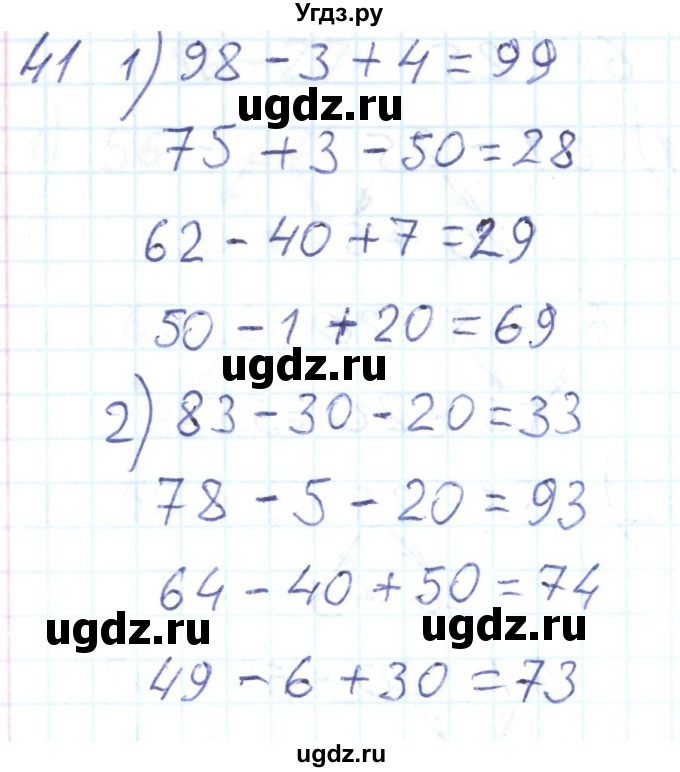 Угдз.ру
41 1) 98 - 3 + 4 = 99
ugdz.ru
75 + 3 - 50 = 28
62 - 40 + 7 = 29
50 - 1 + 20 = 69
ugdz.ru
2) 83 - 30 - 20 = 33
78 - 5 - 20 = 93
64 - 40 + 50 = 74
ugdz.ru ugdz.ru
49 - 6 + 30 = 73
ugdz.ru